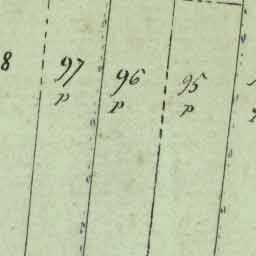 8 97 96 95
p p p